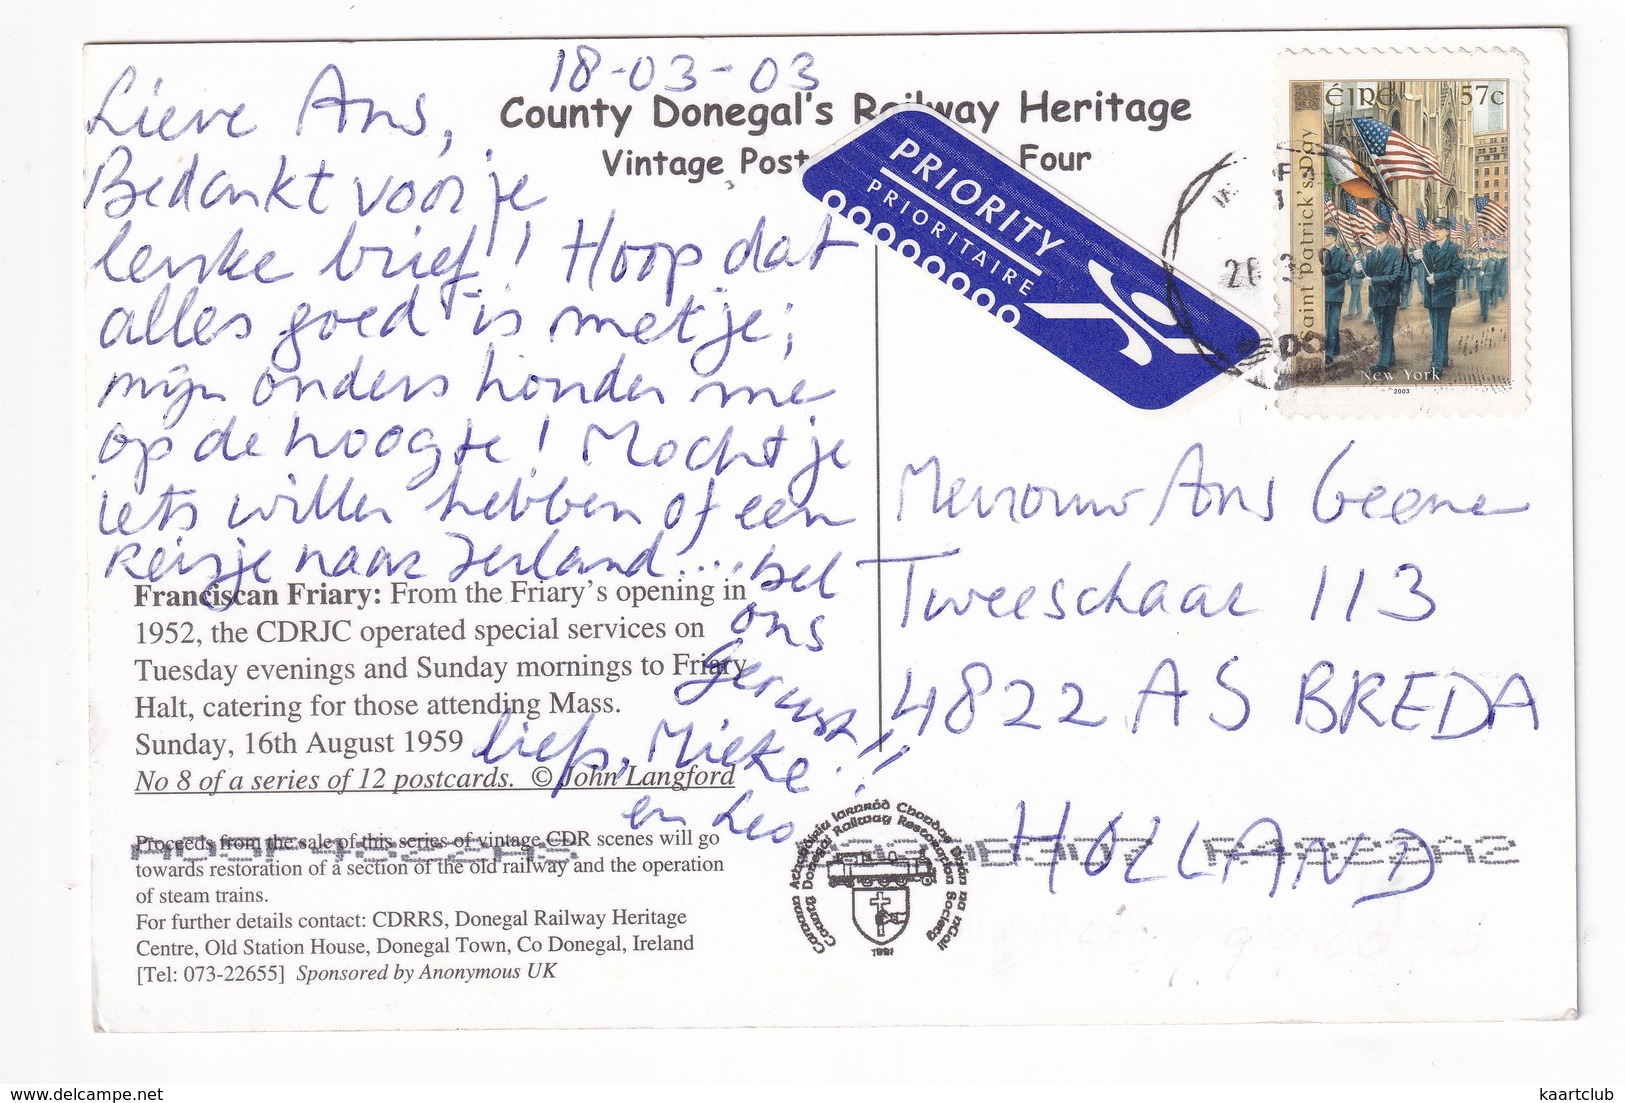 18-03-03
Lieve Ans,
Bedankt voor je
leuke brief! Hoop dat
alles goed is met je;
mijn ouders houden me
op de hoogte! Mocht je
iets willen hebben of een
reisje naar Ierland.... bel
ons
gerust!!
liefs, Mieke
en Leo
County Donegal's Railway Heritage
Vintage Post Four
PRIORITY
PRIORITAIRE
ÉIRE 57c
Saint Patrick's Day
New York
2003
Mevrouw Ans Geene
Tweeschaar 113
4822 AS BREDA
HOLLAND
Franciscan Friary: From the Friary's opening in
1952, the CDRJC operated special services on
Tuesday evenings and Sunday mornings to Friary
Halt, catering for those attending Mass.
Sunday, 16th August 1959
No 8 of a series of 12 postcards. © John Langford
Proceeds from the sale of this series of vintage CDR scenes will go
towards restoration of a section of the old railway and the operation
of steam trains.
For further details contact: CDRRS, Donegal Railway Heritage
Centre, Old Station House, Donegal Town, Co Donegal, Ireland
[Tel: 073-22655] Sponsored by Anonymous UK
County Donegal Railway Restoration Society
kaartclub